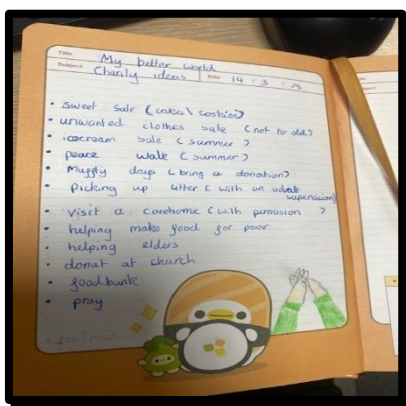 Title My better world
Subject Charity ideas Date 14 : 3 : 25
• sweet sale (cakes\ cookies)
• unwanted clothes sale (not to old)
• icecream sale (summer)
• peace walk (summer)
• Muggty days (bring a donation)
• Picking up litter (with an adult
supervision)
• visit a carehome (with permission)
• helping make food for poor
• helping elders
• donat at church
• foodbank
• pray